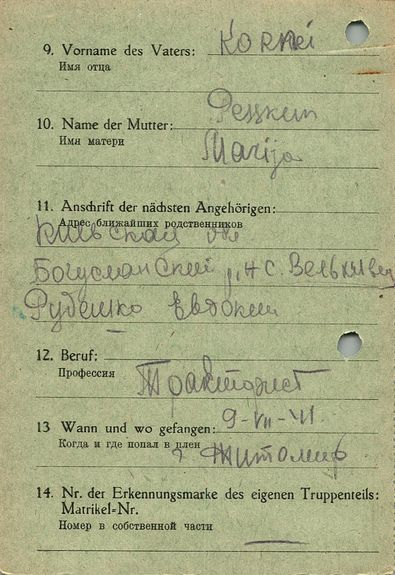 9. Vorname des Vaters: Kornei
Имя отца
10. Name der Mutter:
Имя матери Marija
11. Anschrift der nächsten Angehörigen:
Адрес ближайших родственников
Киевская обл
Богуславский
Руденко Евдокии
12. Beruf:
Профессия Тракторист
13 Wann und wo gefangen: 9-VII-41
Когда и где попал в плен г Житомир
14. Nr. der Erkennungsmarke des eigenen Truppenteils:
Matrikel=Nr.
Номер в собственной части —